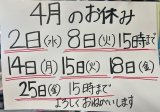 4月のお休み
2日(水) 8日(火) 15時まで
14日(月) 15日(火) 18日(金)
25日(金) 15時まで
よろしくおねがいします